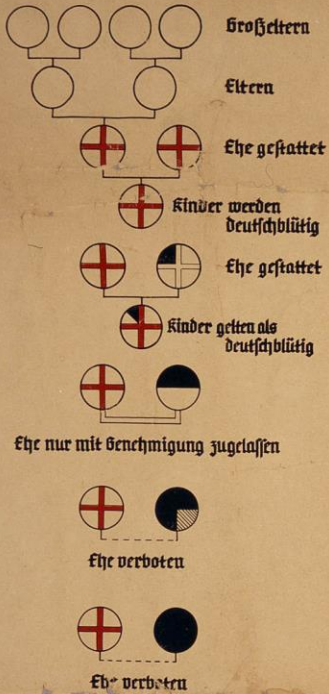 Großeltern
Eltern
Ehe gestattet
Kinder werden
deutschblütig
Ehe gestattet
Kinder gelten als
deutschblütig
Ehe nur mit Genehmigung zugelassen
Ehe verboten
Ehe verboten